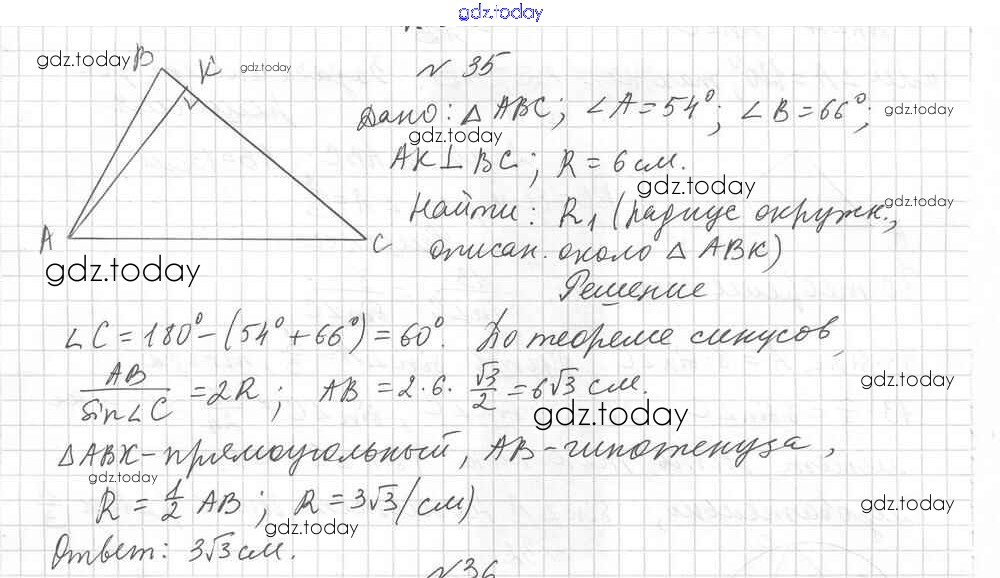 gdz.today
№ 35
gdz.today B K gdz.today
Дано: △ ABC; ∠A=54°; ∠B=66°; gdz.today
gdz.today
AK⊥BC; R=6см.
gdz.today
Найти: R₁ (радиус окружн., gdz.today
A C описан. около △ ABK)
gdz.today
Решение
∠C=180°-(54°+66°)=60°. По теореме синусов,
AB/sin∠C =2R; AB=2·6·√3/2=6√3 см. gdz.today
gdz.today
△ABK-прямоугольный, AB-гипотенуза,
gdz.today
R=1/2 AB; R=3√3(см) gdz.today
gdz.today
Ответ: 3√3см.
№36